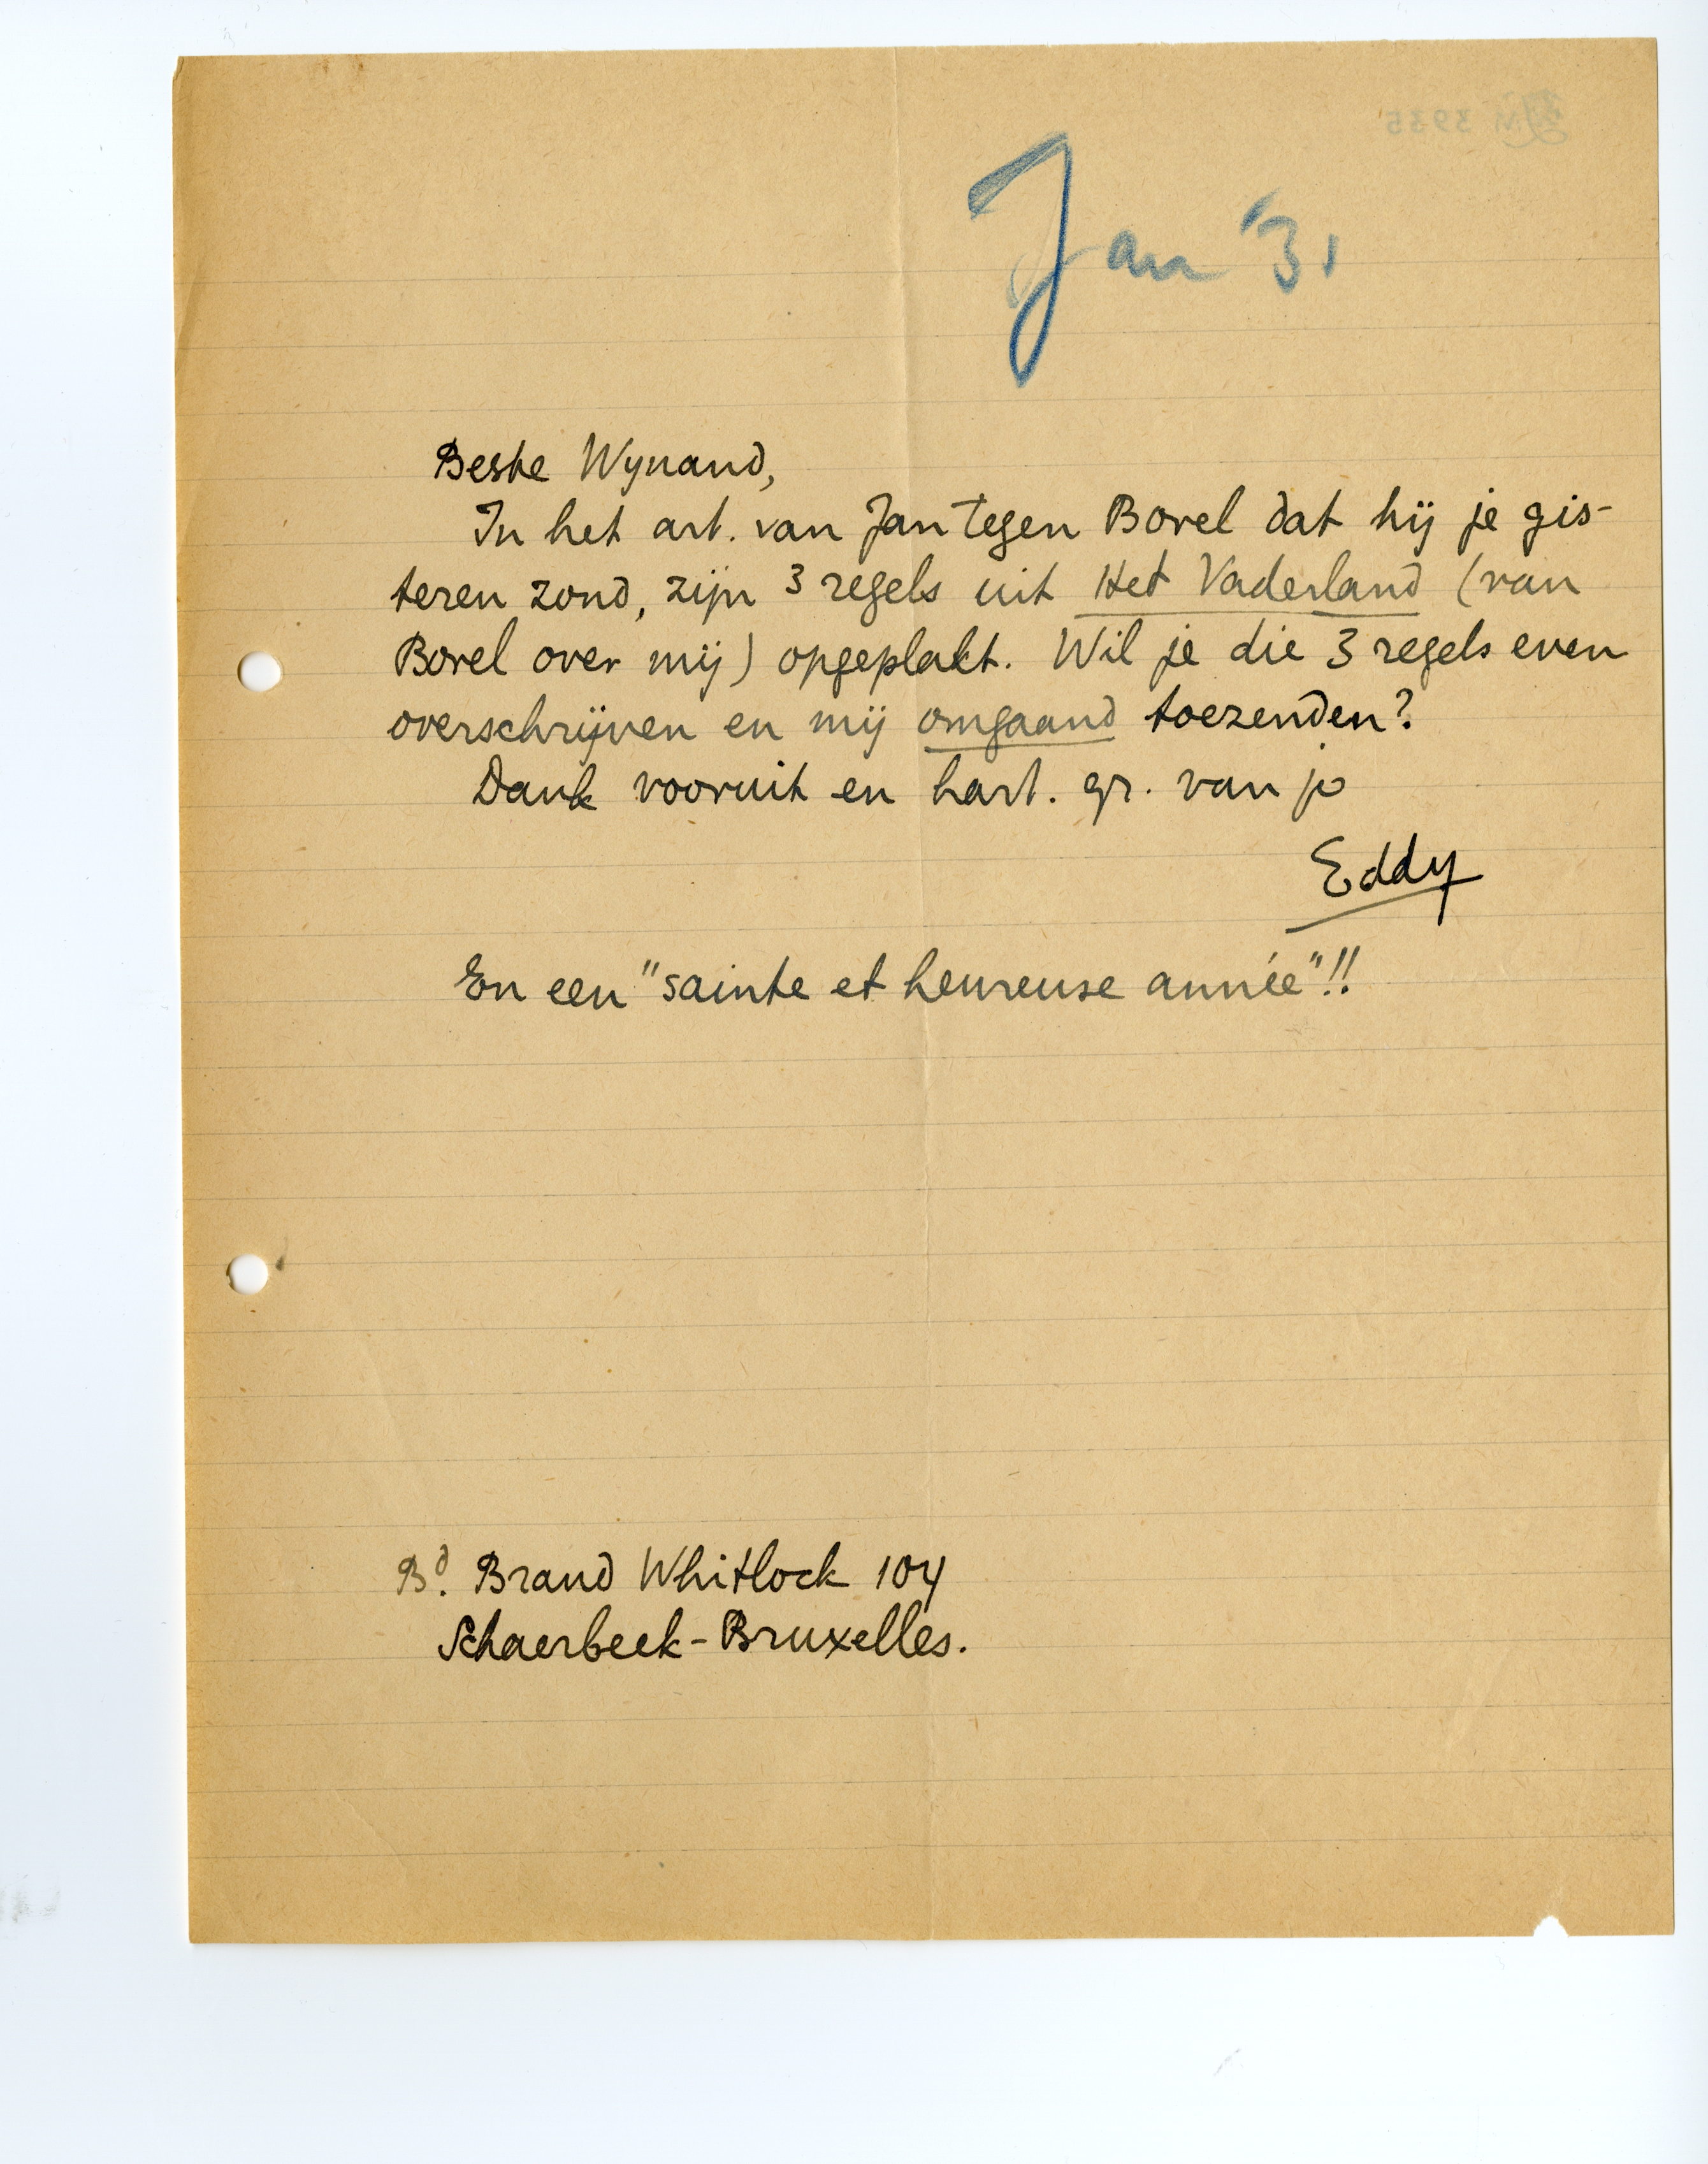 Jan '31
Beste Wynand,
In het art. van Jan tegen Borel dat hij je gis-
teren zond, zijn 3 regels uit Het Vaderland (van
Borel over mij) opgeplakt. Wil je die 3 regels even
overschrijven en mij omgaand toezenden?
Dank vooruit en hart. gr. van je
Eddy
En een "sainte et heureuse année"!!
Bd. Brand Whitlock 104
Schaerbeek-Bruxelles.